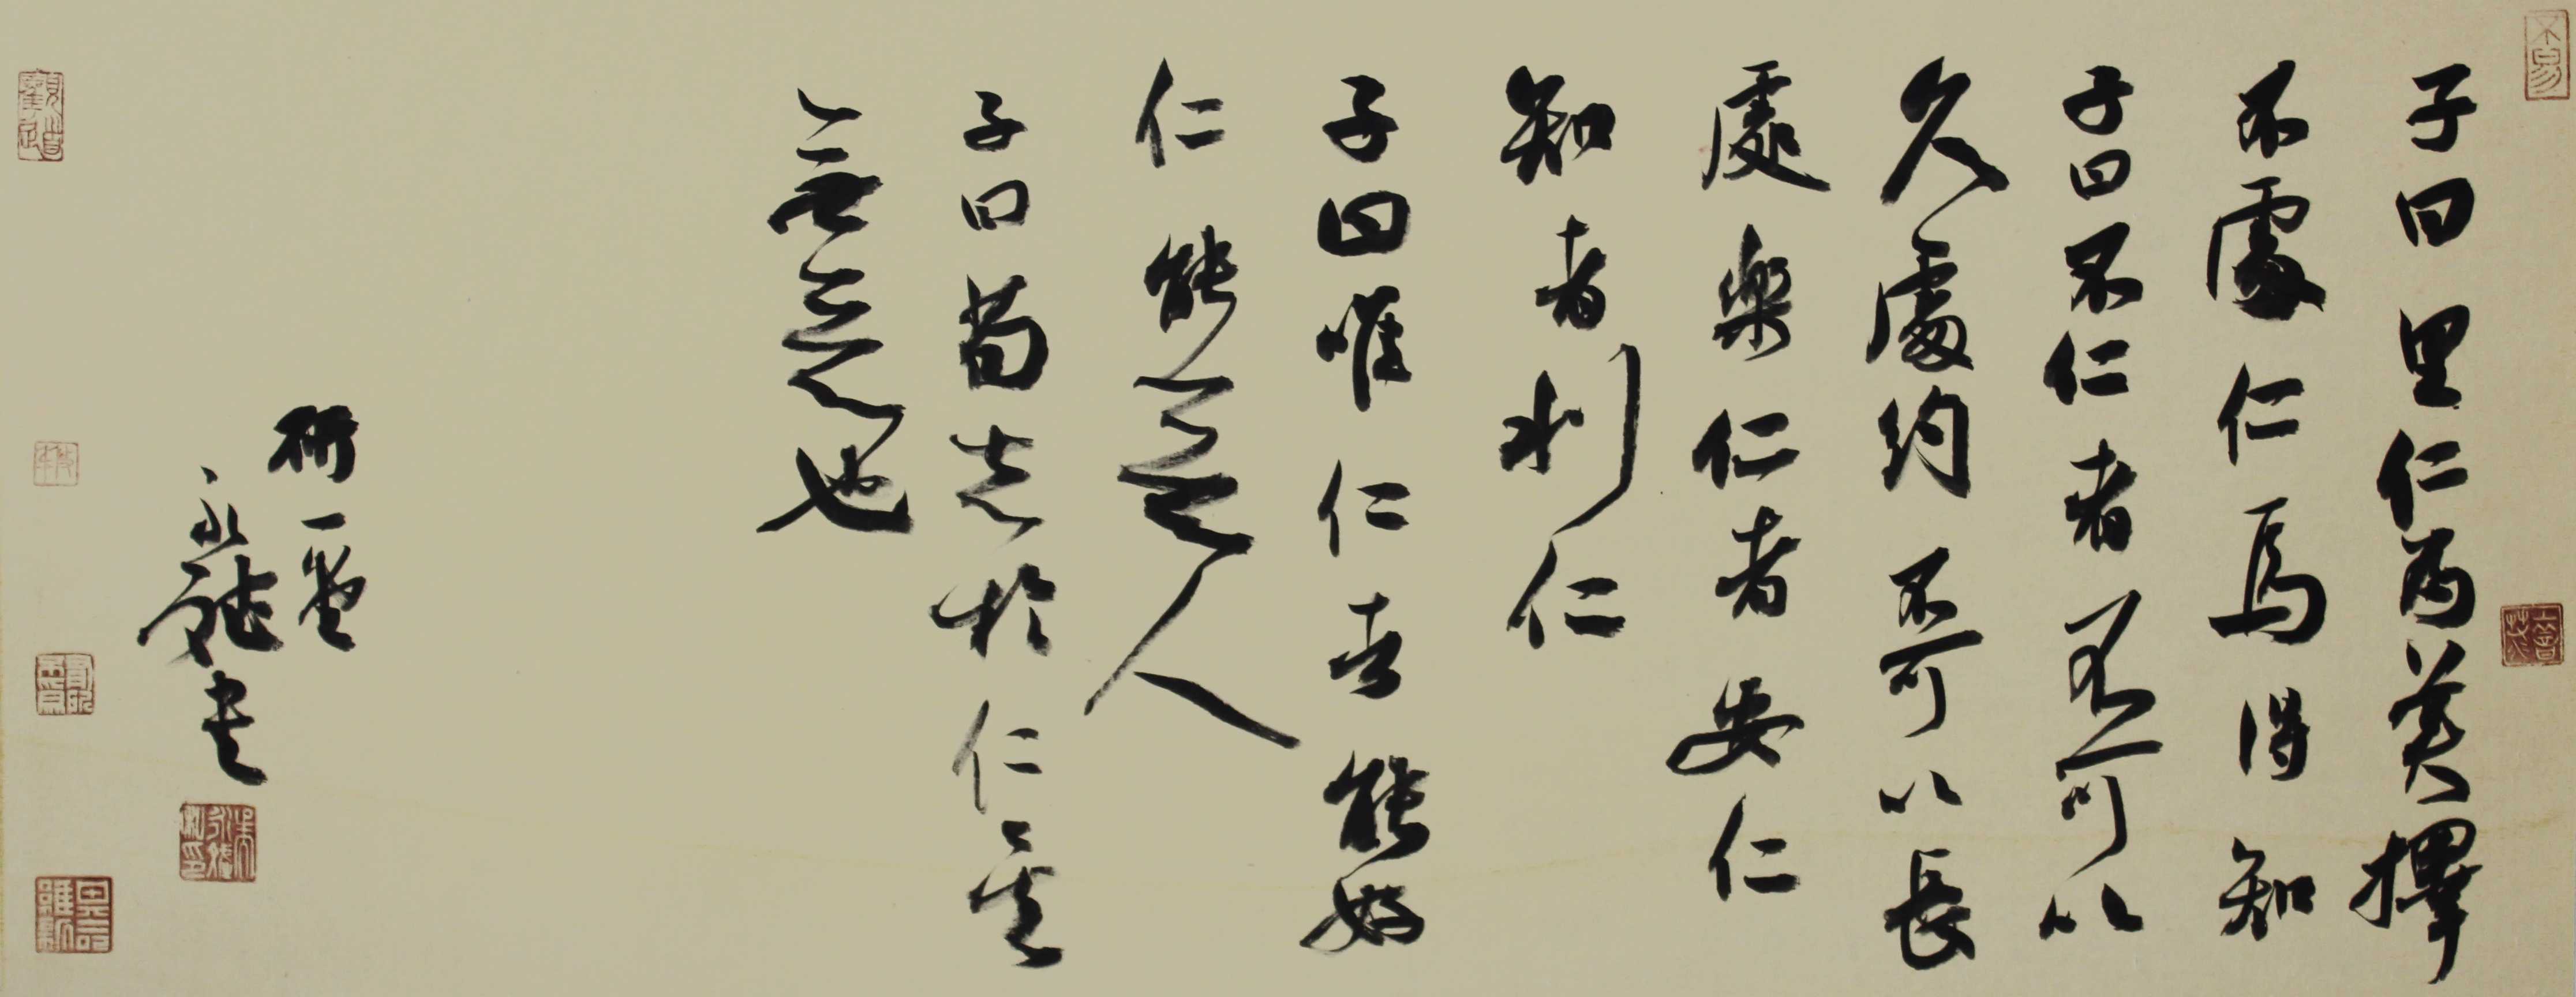 子曰里仁為美擇
不處仁焉得知
子曰不仁者不可以
久處約不可以長
處樂仁者安仁
知者利仁
子曰唯仁者能好
仁能惡人
子曰苟志於仁矣
無惡也
研一堂
永 書
不易